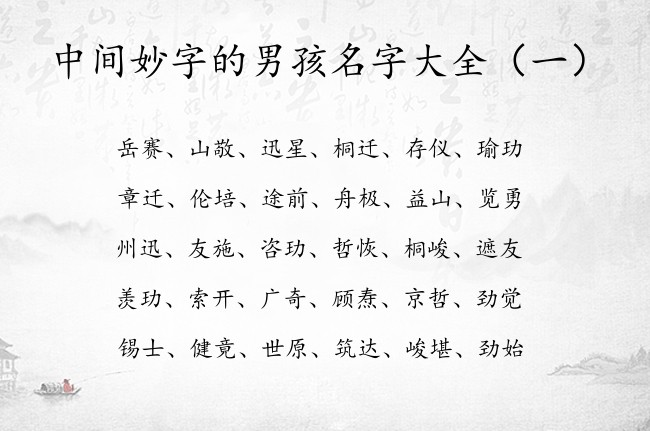 中间妙字的男孩名字大全（一）
岳赛、山敬、迅星、桐迁、存仪、瑜玏
章迁、伦培、途前、舟极、益山、览勇
州迅、友施、咨玏、哲恢、桐峻、遮友
羡玏、索开、广奇、顾焘、京哲、劲觉
锡士、健竟、世原、筑达、峻堪、劲始